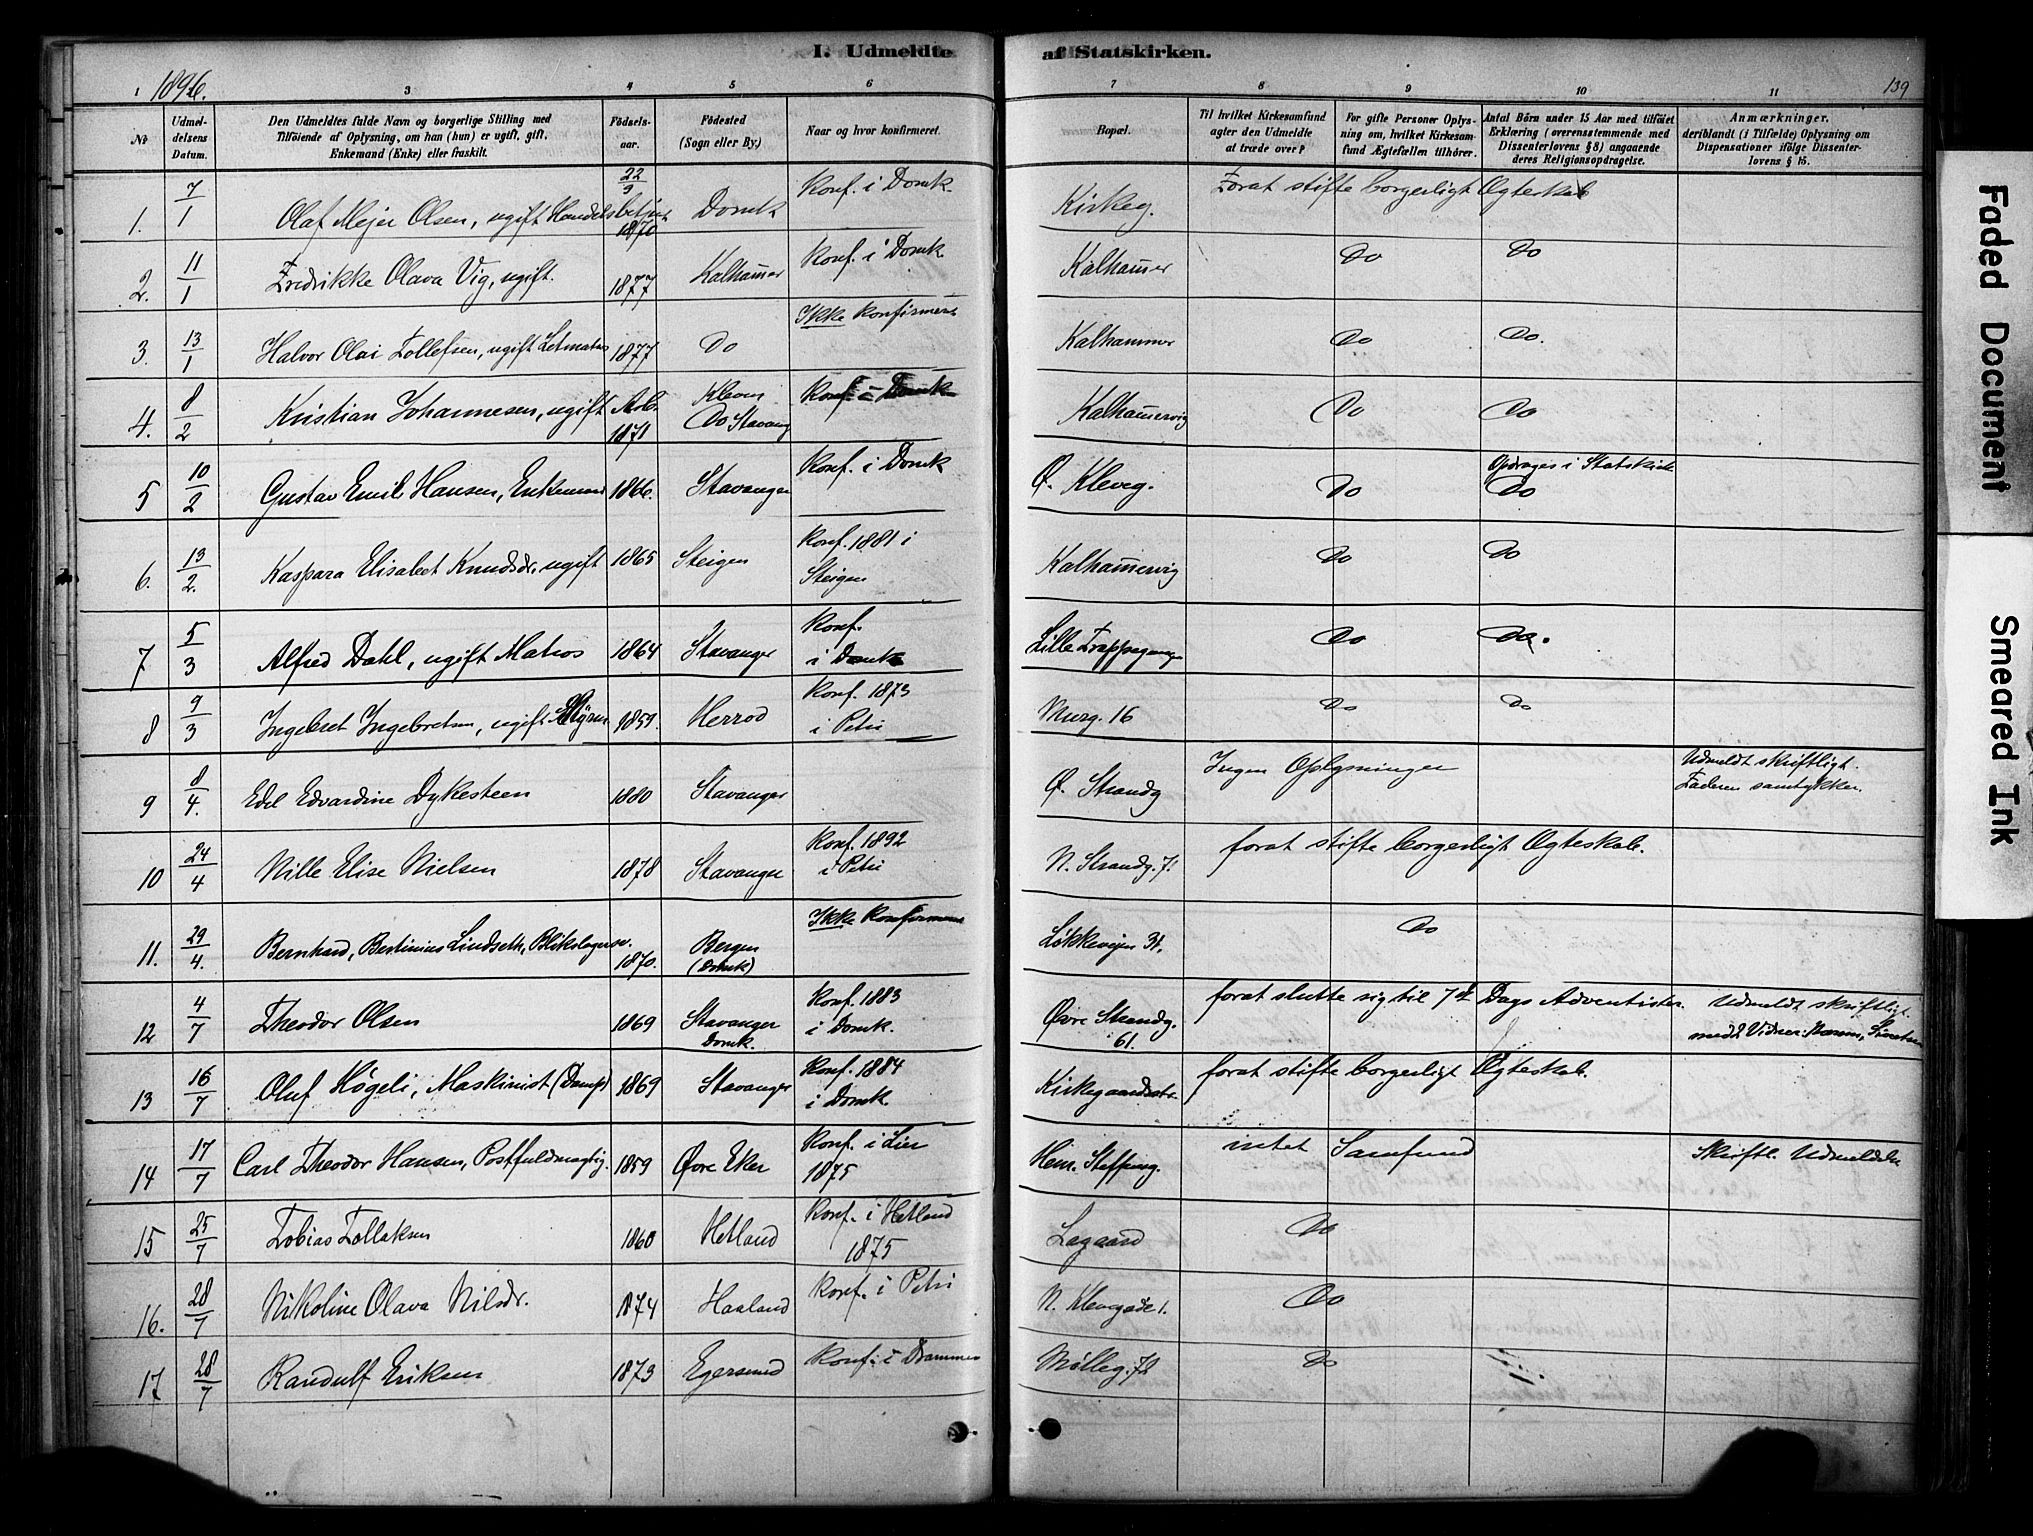 I. Udmeldte af Statskirken.
1896.
139
1 3 4 5 6 7 8 9 10 11
No
Udmeldelsens Datum.
Den Udmeldtes fulde Navn og borgerlige Stilling med Tilføiende af Oplysning, om han (hun) er ugift, gift, Enkemand (Enke) eller fraskilt.
Fødselsaar.
Fødested (Sogn eller By.)
Naar og hvor konfirmeret.
Bopæl.
Til hvilket Kirkesamfund agter den Udmeldte at træde over?
For gifte Personer Oplysning om, hvilket Kirkesamfund Ægtefællen tilhører.
Antal Børn under 15 Aar med tilføiet Erklæring (overensstemmende med Dissenterlovens § 8) angaaende deres Religionsopdragelse.
Anmærkninger, deriblandt (i Tilfælde) Oplysning om Dispensationer ifølge Dissenterlovens § 15.
1. 7/1 Olaf Mejer Olsen, ugift Handelsbetjent 22/9 1870 Domk Konf. i Domk. Kirkeg. Forat stifte borgerligt Ægteskab
2. 11/1 Fredrikke Olava Vig, ugift. 1877 Kalhamer Konf. i Domk Kalhamer Do Do
3. 13/1 Halvor Olai Tollefsen, ugift Letmatros 1877 Do Ikke konfirmeret Kalhammer Do Do.
4. 8/2 Kristian Johannesen, ugift Arb. 1871 Do Stavang Konf. i Domk Kalhamervig Do Do
5 10/2 Gustav Emil Hansen, Enkemand 1866. Stavanger Konf. i Domk Ø. Kleveg. Do Opdrages i Statskirk Do
6. 13/2. Kaspara Elisabet Knudsdr, ugift 1865 Steigen Konf. 1881 i Steigen Kalhamervig Do Do
7 5/3 Alfred Dahl, ugift Matros 1864 Stavanger Konf. i Domk Lille Trappegangen Do Do.
8 9/3 Ingebret Ingebretsen, ugift 1859. Herrod Konf. 1873 i Petri Murg. 16 Do Do
9 8/4. Edel Edvardine Dykesteen 1880 Stavanger Ø. Strandg Ingen Oplysninger Udmeldt skriftligt. Faderen samtykker.
10 24/4 Nille Elise Nielsen 1878 Stavanger Konf. 1892 i Petri N. Strandg. 71 forat stifte borgerligt Ægteskab.
11. 29/4. Bernhard, Bertinius Lindseth, Blikslagersv. 1870. Bergen (Domk) Ikke Konfirmeret Løkkeveien 31. Do
12 4/7 Theodor Olsen 1869 Stavanger Domk. Konf. 1883 i Domk. Øvre Strandg. 61. forat slutte sig til 7d Dags Adventister. Udmeldt skriftligt medt Vidner:
13 16/7 Oluf Høgeli, Maskinist (Damp) 1869 Stavanger Konf. 1884 i Domk. Kirkegaardsstr. forat stifte borgerligt Ægteskab.
14 17/7 Carl Theodor Hansen, Postfuldmægtig. 1859 Øvre Eker Konf. i Lier 1875 Hen. Steffensg. intet Samfund Skriftl. Udmeldelse
15 25/7 Tobias Tollaksen 1860 Hetland Konf. i Hetland 1875 Lagaard Do
16. 28/7 Nikoline Olava Nilsdr. 1874 Haaland Konf. i Petri N. Klevegade 1. Do
17 28/7 Randulf Eriksen 1873 Egersund Konf. i Drammen Mølleg. 72 Do
Faded Document
Smeared Ink